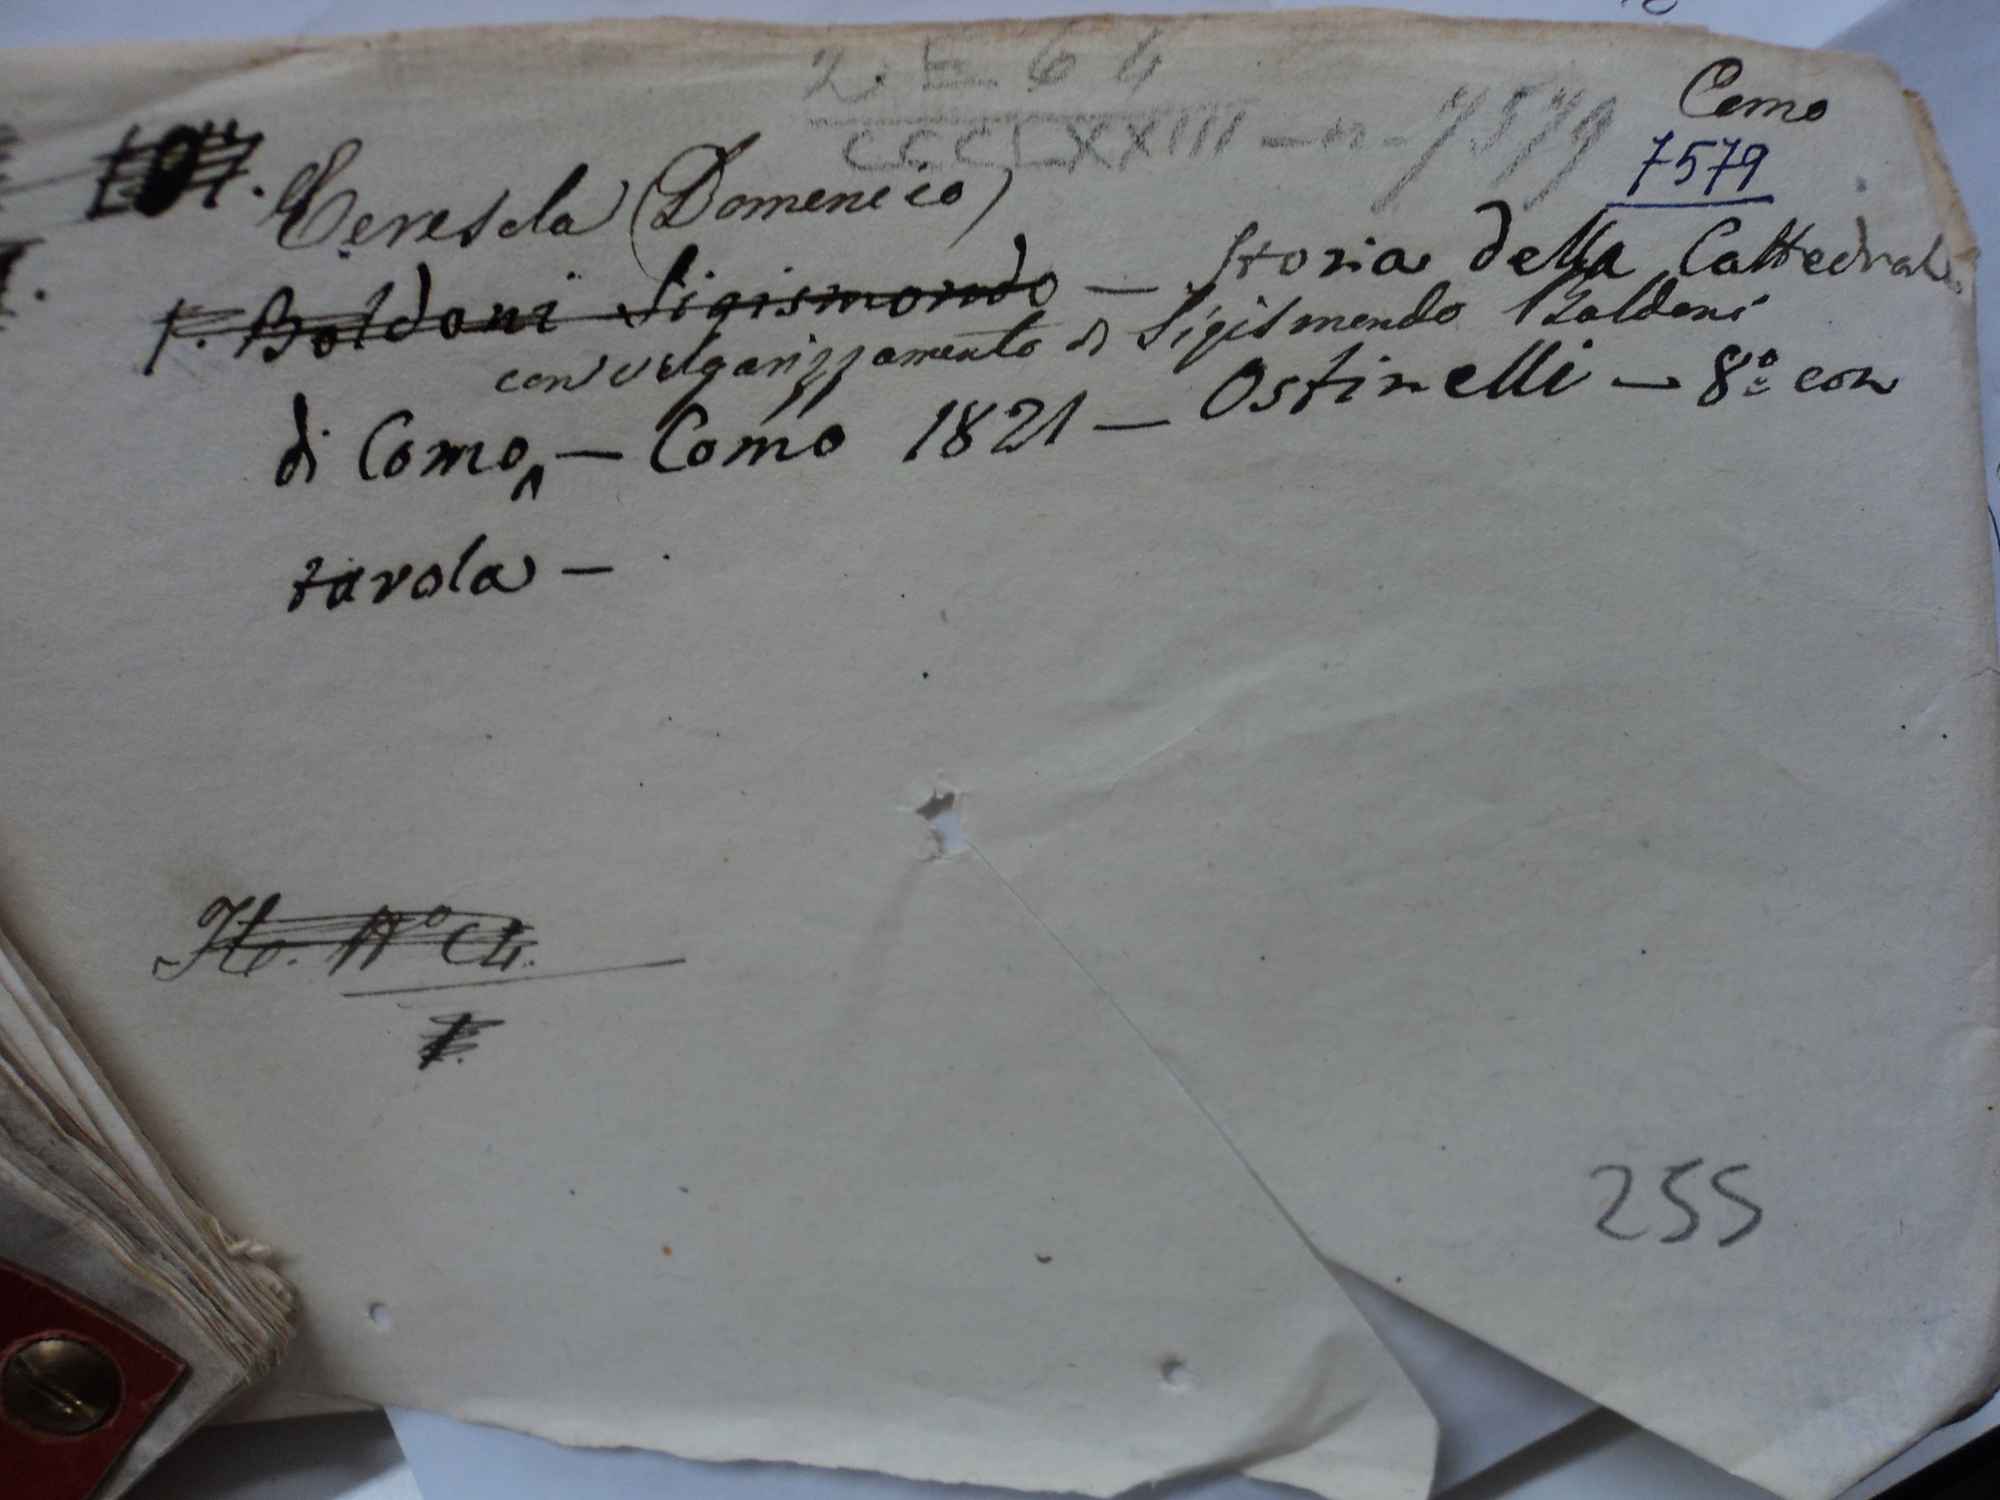 2. E. 64
CCCLXXIII - n - 7579
Como
7579
Ceresola (Domenico)
1. Boldoni Sigismondo — Storia della Cattedral
con vulgarizzamento di Sigismondo Boldoni
di Como — Como 1821 — Ostinelli — 8º con
tavola —
255